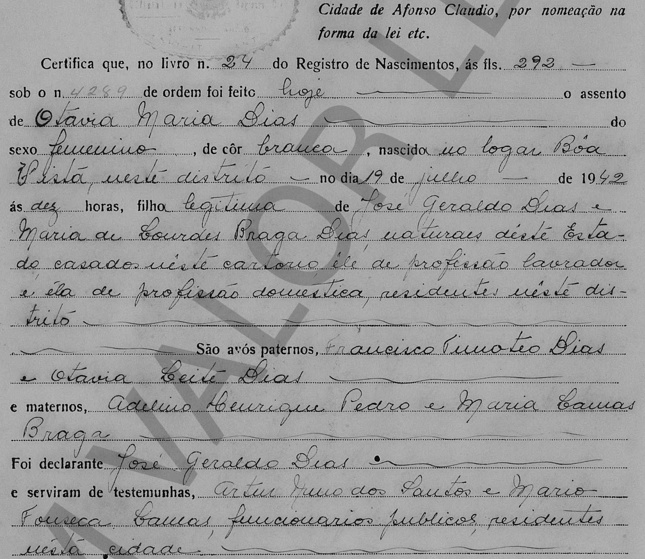 Cidade de Afonso Claudio, por nomeação na
forma da lei etc.
Certifica que, no livro n. 24 do Registro de Nascimentos, ás fls. 292
sob o n. 4289 de ordem foi feito hoje o assento
de Otavia Maria Dias do
sexo femenino, de côr branca, nascido no logar Bôa
Vista, neste distrito no dia 19 de julho de 1942
ás dez horas, filho legitima de José Geraldo Dias e
Maria de Lourdes Braga Dias, naturaes déste Esta-
do, casados néste cartorio êle de profissão lavrador
e éla de profissão domestica, residentes néste dis-
trito
São avós paternos, Francisco Timoteo Dias
e Otavia Leite Dias
e maternos, Adelino Henrique Pedro e Maria Lamas
Braga
Foi declarante José Geraldo Dias
e serviram de testemunhas, Artur dos Santos e Mario
Fonseca Lamas, funcionarios publicos, residentes
nesta cidade
VALOR